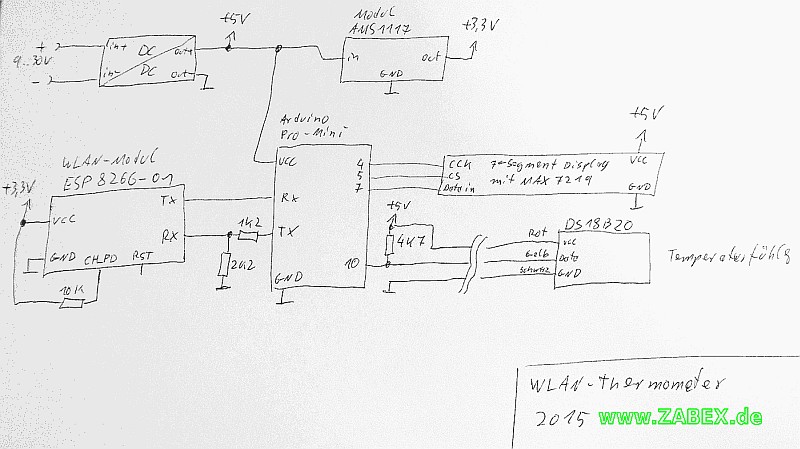 +5V
Modul
AMS1117
+3,3V
+ 2
9...30V
- 2
in+
DC
out+
in-
DC
out-
in
out
GND
Arduino
Pro-Mini
+5V
WLAN-Modul
ESP 8266-01
+3,3V
VCC
TX
RX
GND
CH_PD
RST
10K
1K2
2K2
VCC
Rx
TX
GND
4
5
7
10
CLK
CS
Data in
7-Segment Display
mit MAX 7219
VCC
GND
+5V
4K7
Rot
Gelb
Schwarz
DS18B20
VCC
Data
GND
Temperaturfühler
WLAN-Thermometer
2015 www.ZABEX.de